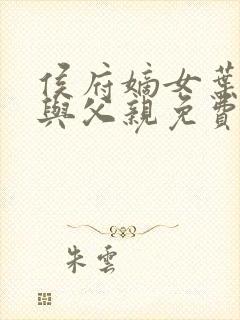 侯府嫡女葉
與父親免費
朱雲